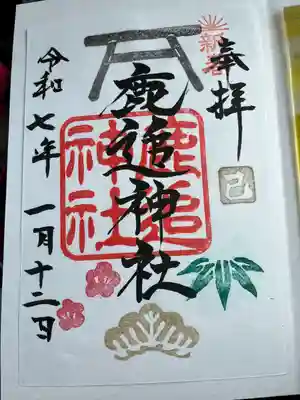 迎新春
奉拝
巳
鹿追神社
鹿追神社
令和七年一月十二日